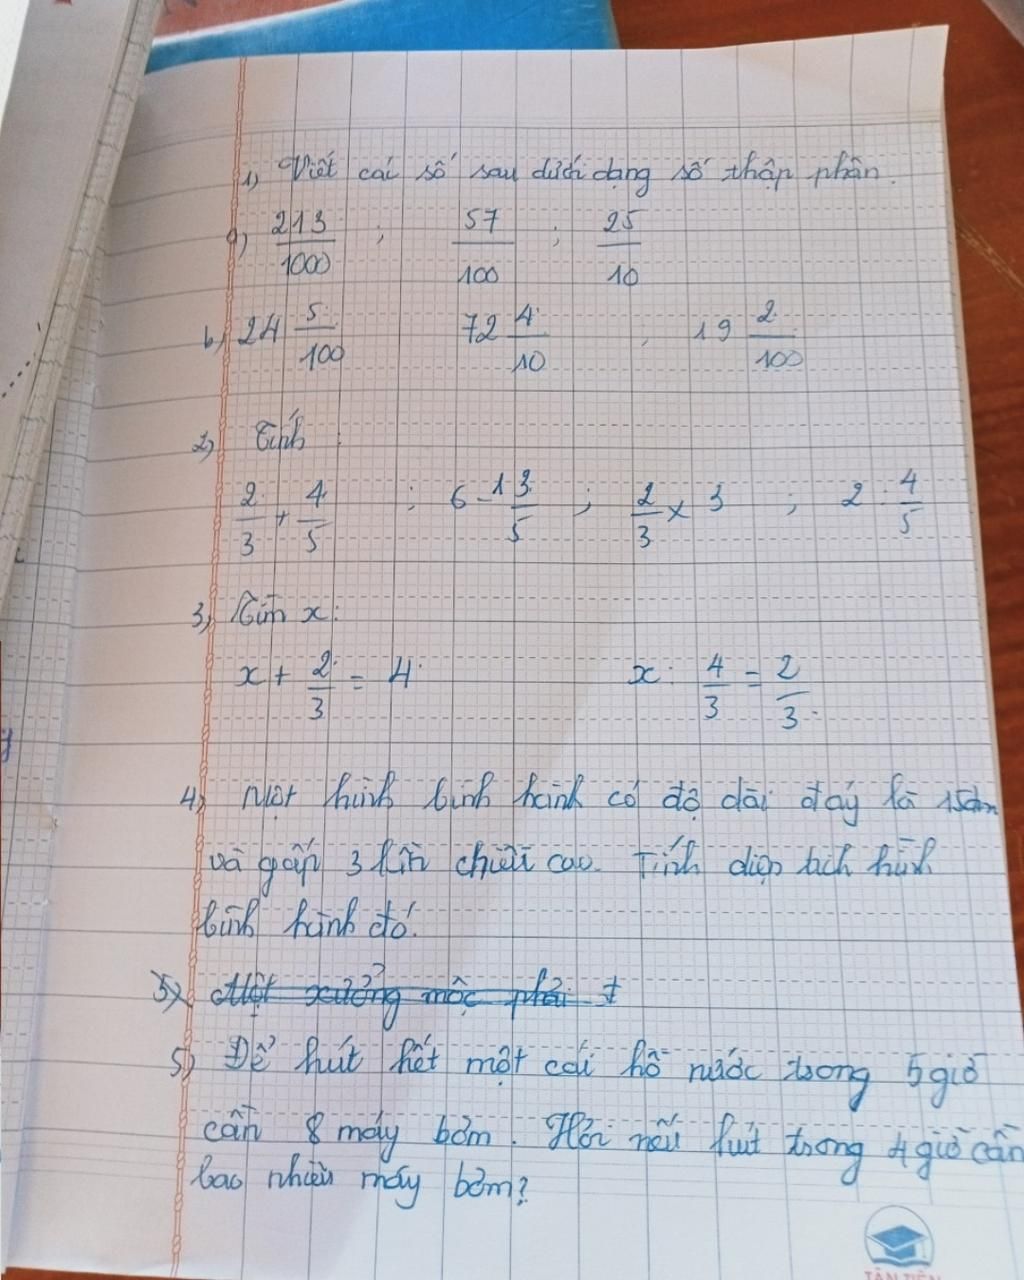 1) Viết các số sau dưới dạng số thập phân.
a) 213/1000 ; 57/100 ; 25/10
b) 24 5/100 72 4/10 , 19 2/100
2) Tính :
2/3 + 4/5 ; 6 - 1 3/5 ; 2/3 x 3 ; 2 : 4/5
3) Tìm x:
x + 2/3 = 4 x : 4/3 = 2/3
4) Một hình bình hành có độ dài đáy là 15dm
và gấp 3 lần chiều cao. Tính diện tích hình
bình hành đó.
5) Một xưởng mộc phải t
5) Để hút hết một cái hồ nước trong 5 giờ
cần 8 máy bơm. Hỏi nếu hút trong 4 giờ cần
bao nhiêu máy bơm?
TÂN TIẾN